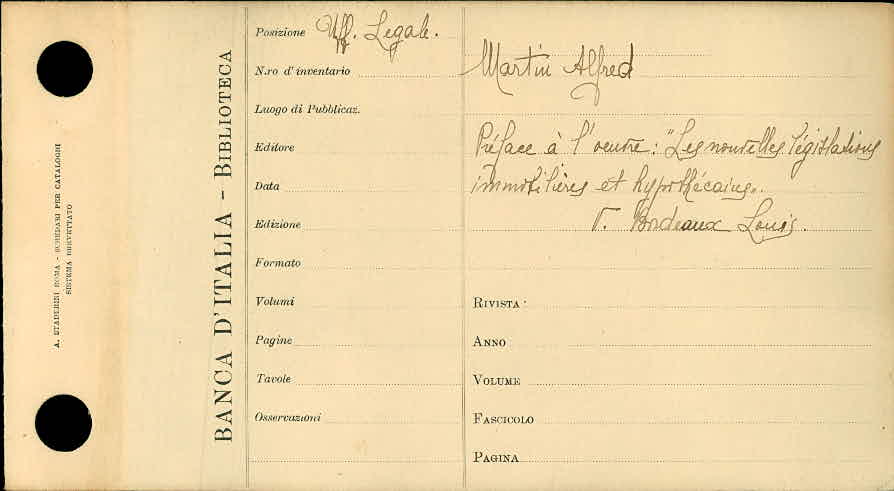 A. STADERINI ROMA - SCHEDARI PER CATALOGHI
SISTEMA BREVETTATO
BANCA D'ITALIA - BIBLIOTECA
Posizione Uff. Legale.
N.ro d'inventario
Luogo di Pubblicaz.
Editore
Data
Edizione
Formato
Volumi
Pagine
Tavole
Osservazioni
Martin Alfred
Préface à l'oeuvre: "Les nouvelles législations
immobilières et hypothécaires".
V. Bordeaux Louis.
RIVISTA:
ANNO
VOLUME
FASCICOLO
PAGINA